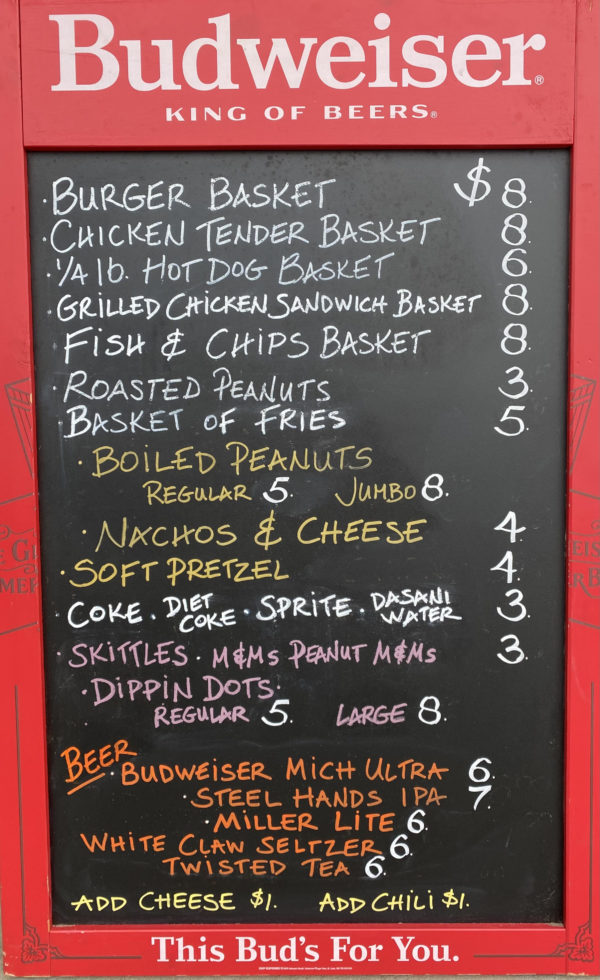 Budweiser®
KING OF BEERS®
· BURGER BASKET $8.
· CHICKEN TENDER BASKET 8.
· 1/4 lb. HOT DOG BASKET 6.
· GRILLED CHICKEN SANDWICH BASKET 8.
· FISH & CHIPS BASKET 8.
· ROASTED PEANUTS 3.
· BASKET OF FRIES 5.
· BOILED PEANUTS
REGULAR 5. JUMBO 8.
· NACHOS & CHEESE 4.
· SOFT PRETZEL 4.
· COKE · DIET COKE · SPRITE · DASANI WATER 3.
· SKITTLES · M&Ms PEANUT M&Ms 3.
· DIPPIN DOTS:
REGULAR 5. LARGE 8.
BEER
· BUDWEISER MICH ULTRA 6.
· STEEL HANDS IPA 7.
· MILLER LITE 6.
WHITE CLAW SELTZER 6.
TWISTED TEA 6.
ADD CHEESE $1. ADD CHILI $1.
This Bud's For You.